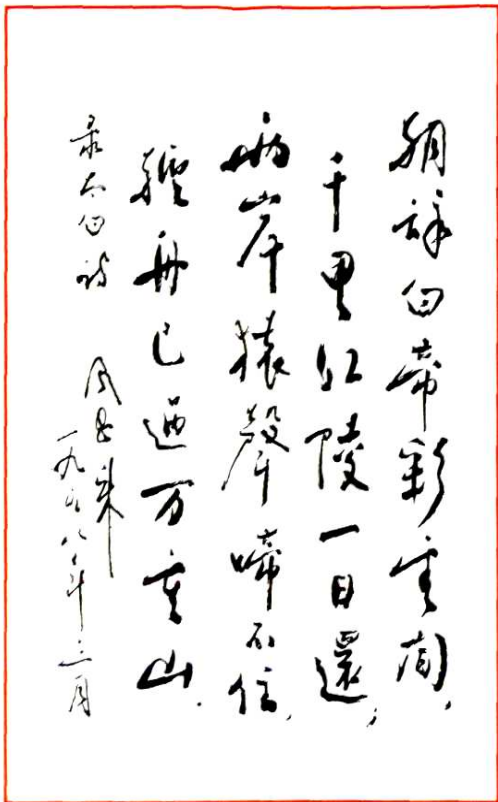 朝辞白帝彩雲间，
千里江陵一日還，
两岸猿聲啼不住，
輕舟已過万重山．
录太白诗 周恩来
一九五八年三月